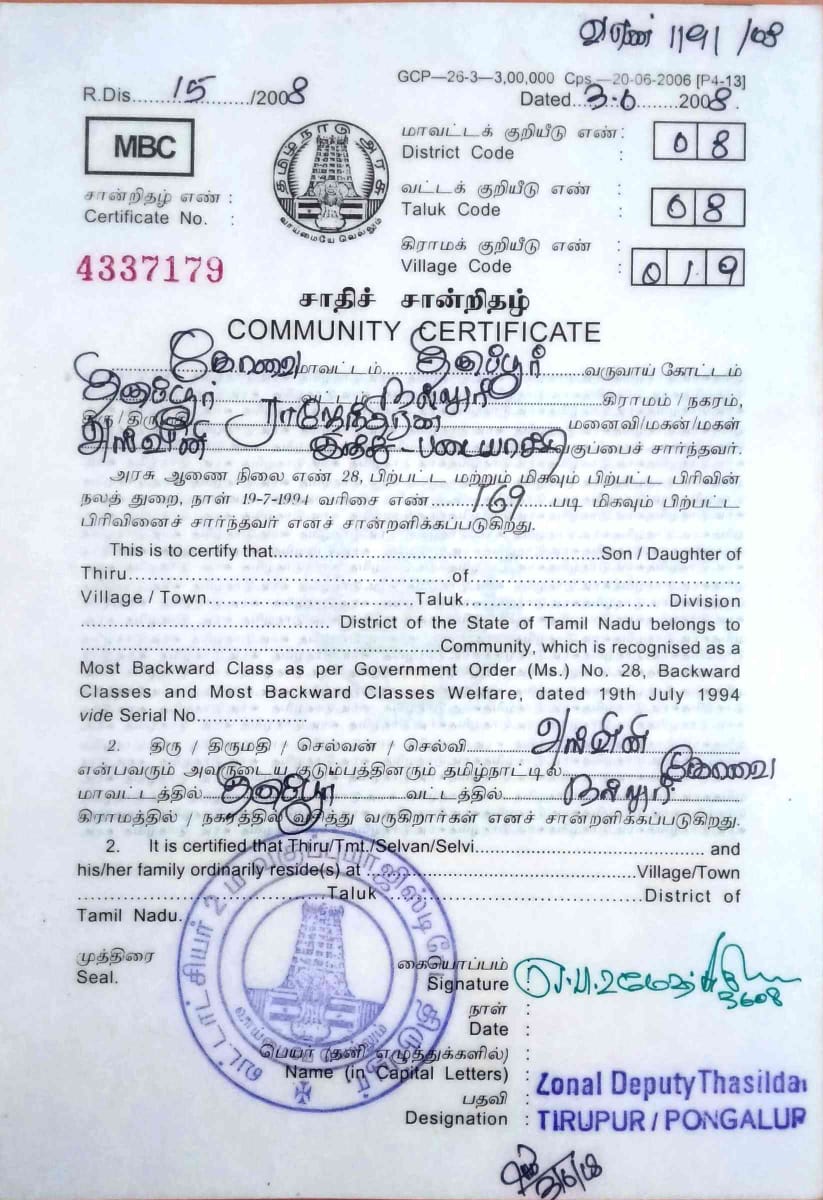 வஎண் 1191/08
GCP—26-3—3,00,000 Cps.—20-06-2006 [P4-13]
R.Dis.....15...../2008
Dated...3-6......2008.
MBC
தமிழ்நாடு அரசு
வாய்மையே வெல்லும்
மாவட்டக் குறியீடு எண் :
District Code : 08
வட்டக் குறியீடு எண் :
Taluk Code : 08
சான்றிதழ் எண் :
Certificate No. :
கிராமக் குறியீடு எண் :
Village Code : 019
4337179
சாதிச் சான்றிதழ்
COMMUNITY CERTIFICATE
கோவை மாவட்டம் திருப்பூர் வருவாய் கோட்டம்
திருப்பூர் வட்டம் நல்லூர் கிராமம் / நகரம்,
திரு / திருமதி ராஜேந்திரன் மனைவி/மகன்/மகள்
அஸ்வினி இந்து - படையாட்சி வகுப்பைச் சார்ந்தவர்.
அரசு ஆணை நிலை எண் 28, பிற்பட்ட மற்றும் மிகவும் பிற்பட்ட பிரிவின்
நலத் துறை, நாள் 19-7-1994 வரிசை எண்......169...படி மிகவும் பிற்பட்ட
பிரிவினைச் சார்ந்தவர் எனச் சான்றளிக்கப்படுகிறது.
This is to certify that..............................Son / Daughter of
Thiru..............................of..............................
Village / Town....................Taluk.................... Division
.............................. District of the State of Tamil Nadu belongs to
..............................Community, which is recognised as a
Most Backward Class as per Government Order (Ms.) No. 28, Backward
Classes and Most Backward Classes Welfare, dated 19th July 1994
vide Serial No....................
2. திரு / திருமதி / செல்வன் / செல்வி அஸ்வினி
என்பவரும் அவருடைய குடும்பத்தினரும் தமிழ்நாட்டில் கோவை
மாவட்டத்தில் திருப்பூர் வட்டத்தில் நல்லூர்
கிராமத்தில் / நகரத்தில் வசித்து வருகிறார்கள் எனச் சான்றளிக்கப்படுகிறது.
2. It is certified that Thiru/Tmt./Selvan/Selvi.............................. and
his/her family ordinarily reside(s) at ..............................Village/Town
..............................Taluk ..............................District of
Tamil Nadu.
முத்திரை
Seal.
கையொப்பம்
Signature :
3608
நாள் :
Date :
பெயர் (தனி எழுத்துக்களில்) :
Name (in Capital Letters) :
Zonal Deputy Thasildar
பதவி
Designation : TIRUPUR / PONGALUR
3/6/08